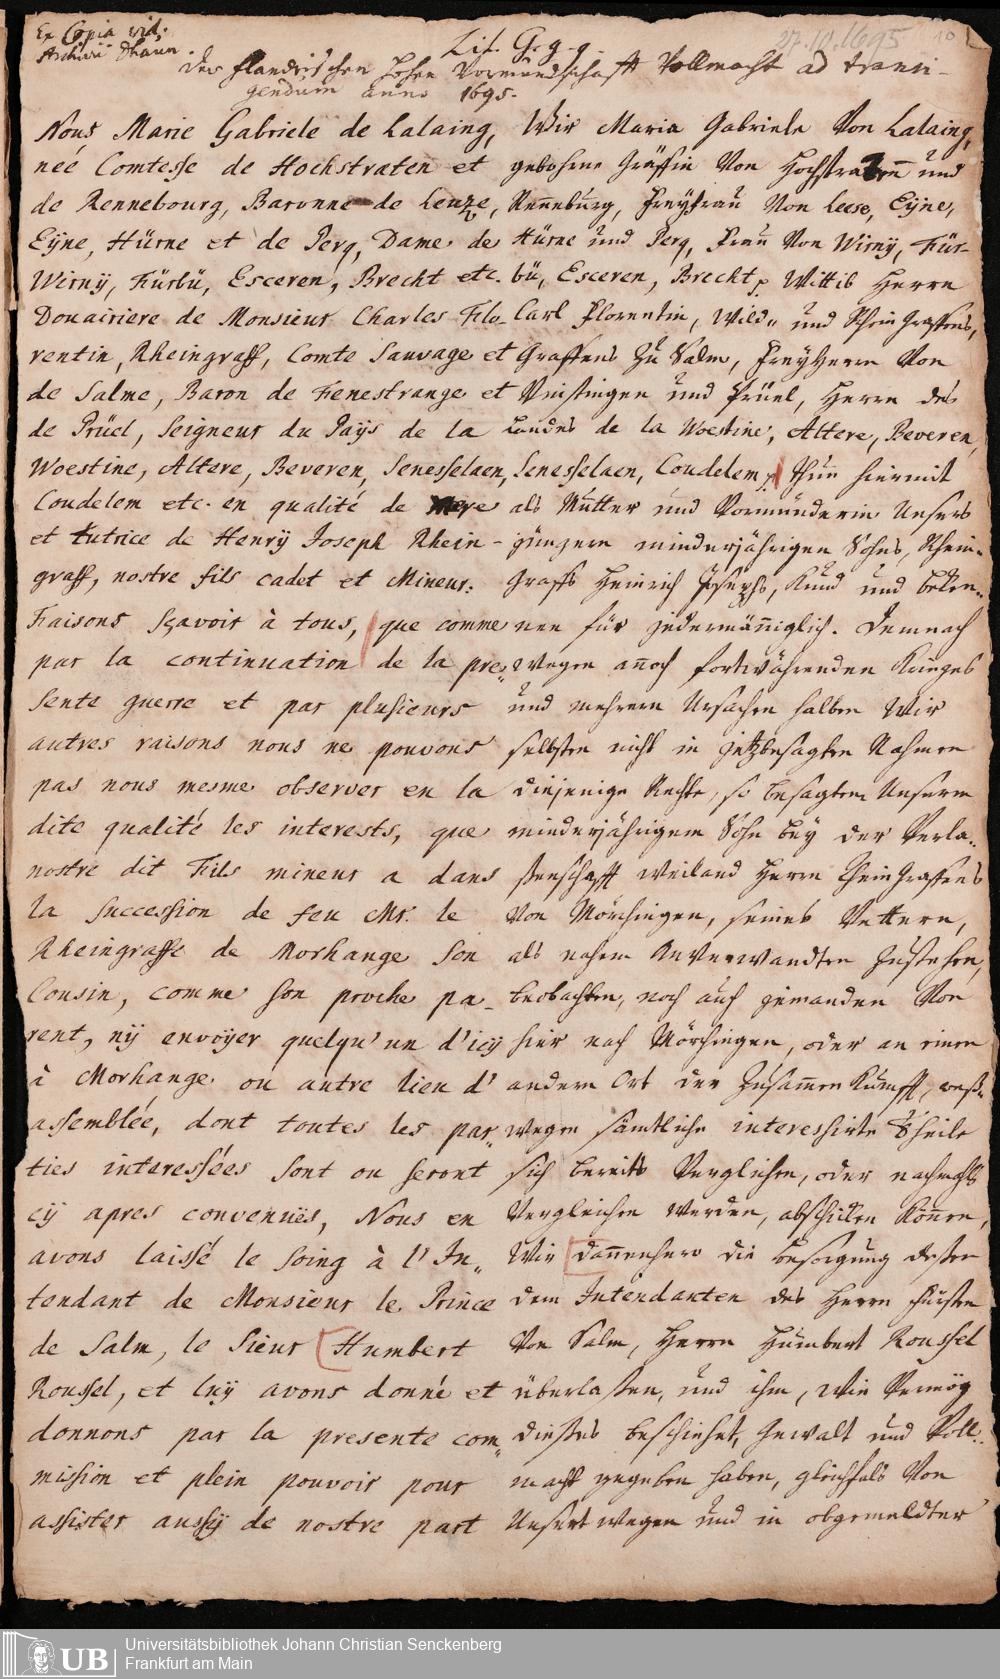 Ex Copia vid.
Archivii Dhaun
27.10.1695
10
Lit. G.g.g.
Der Flandrischen hohen Vormundschafft Vollmacht ad transi-
gendum anno 1695.
Nous Marie Gabriele de Lalaing,
neé Comtesse de Hochstraten et
de Rennebourg, Baronne de Leuze,
Eÿne, Hürne et de Perq, Dame de
Wirnÿ, Fürbü, Esceren, Brecht etc.
Douairiere de Monsieur Charles Flo-
rentin, Rheingraff, Comte Sauvage et
de Salme, Baron de Fenestrange et
de Prüel, Seigneur du Païs de la
Woestine, Altere, Beveren, Senesselaen,
Coudelem etc. en qualité de mere
et tutrice de Henrÿ Joseph Rhein-
graff, nostre fils cadet et Mineur:
Faisons sçavoir à tous, que comme
par la continuation de la pre-
sente guerre et par plusieurs
autres raisons nous ne pouvons
pas nous mesme observer en la
dite qualité les interests, que
nostre dit Fils mineur a dans
la succession de feu Mr. le
Rheingraffe de Morhange son
Cousin, comme son proche pa-
rent, nÿ envoÿer quelqu'un d'icÿ
à Morhange ou autre lieu d'
assemblée, dont toutes les par-
ties interessées sont ou seront
cÿ apres convenuës, Nous en
avons laissé le soing à l'In-
tendant de Monsieur le Prince
de Salm, le Sieur Humbert
Roussel, et luÿ avons donné et
donnons par la presente com-
mission et plein pouvoir pour
assister aussÿ de nostre part
Wir Maria Gabriele Von Lalaing,
gebohrne Gräffin Von Hochstraten und
Renneburg, Freÿfrau Von Leese, Eÿne,
Hürne und Perq, Frau Von Wirnÿ, Für-
bü, Esceren, Brecht p Wittib Herrn
Carl Florentin, Wild- und Rhein Graffens,
Graffens zu Salm, Freyherrn Von
Vinstingen und Prüel, Herrn des
Landes de la Woestine, Altere, Beveren,
Senesselaen, Coudelem p Thun hiermit
als Mutter und Vormünderin Unsers
jüngern minderjährigen Sohns, Rhein-
Graffs Heinrich Josephs, Kund und beken-
nen für jedermänniglich. Demnach
wegen annoch fortwährenden Krieges
und mehrern Ursachen halben Wir
selbsten nicht in jetzbesagten Nahmen
diejenige Rechte, so besagtem Unserm
minderjährigem Sohn beÿ der Verla-
ßenschafft weiland Herrn Rhein Graffens
Von Mörchingen, seines Vettern,
als nahem Anverwandten zustehen,
beobachten, noch auch jemanden Von
hier nach Mörchingen, oder an einen
andern Ort der Zusammen Kunfft, weß-
wegen sämtliche interessirte Theile
sich bereits Verglichen, oder nachmahls
Vergleichen werden, abschicken können,
Wir dannenhero die besorgung dessen
dem Intendanten des Herrn Fürsten
Von Salm, Herrn Humbert Roussel
überlaßen, und ihm, wie Vermög
dießes beschiehet, Gewalt und Voll-
macht gegeben haben, gleichfals Von
Unsertwegen und in obgemeldter
UB
Universitätsbibliothek Johann Christian Senckenberg
Frankfurt am Main